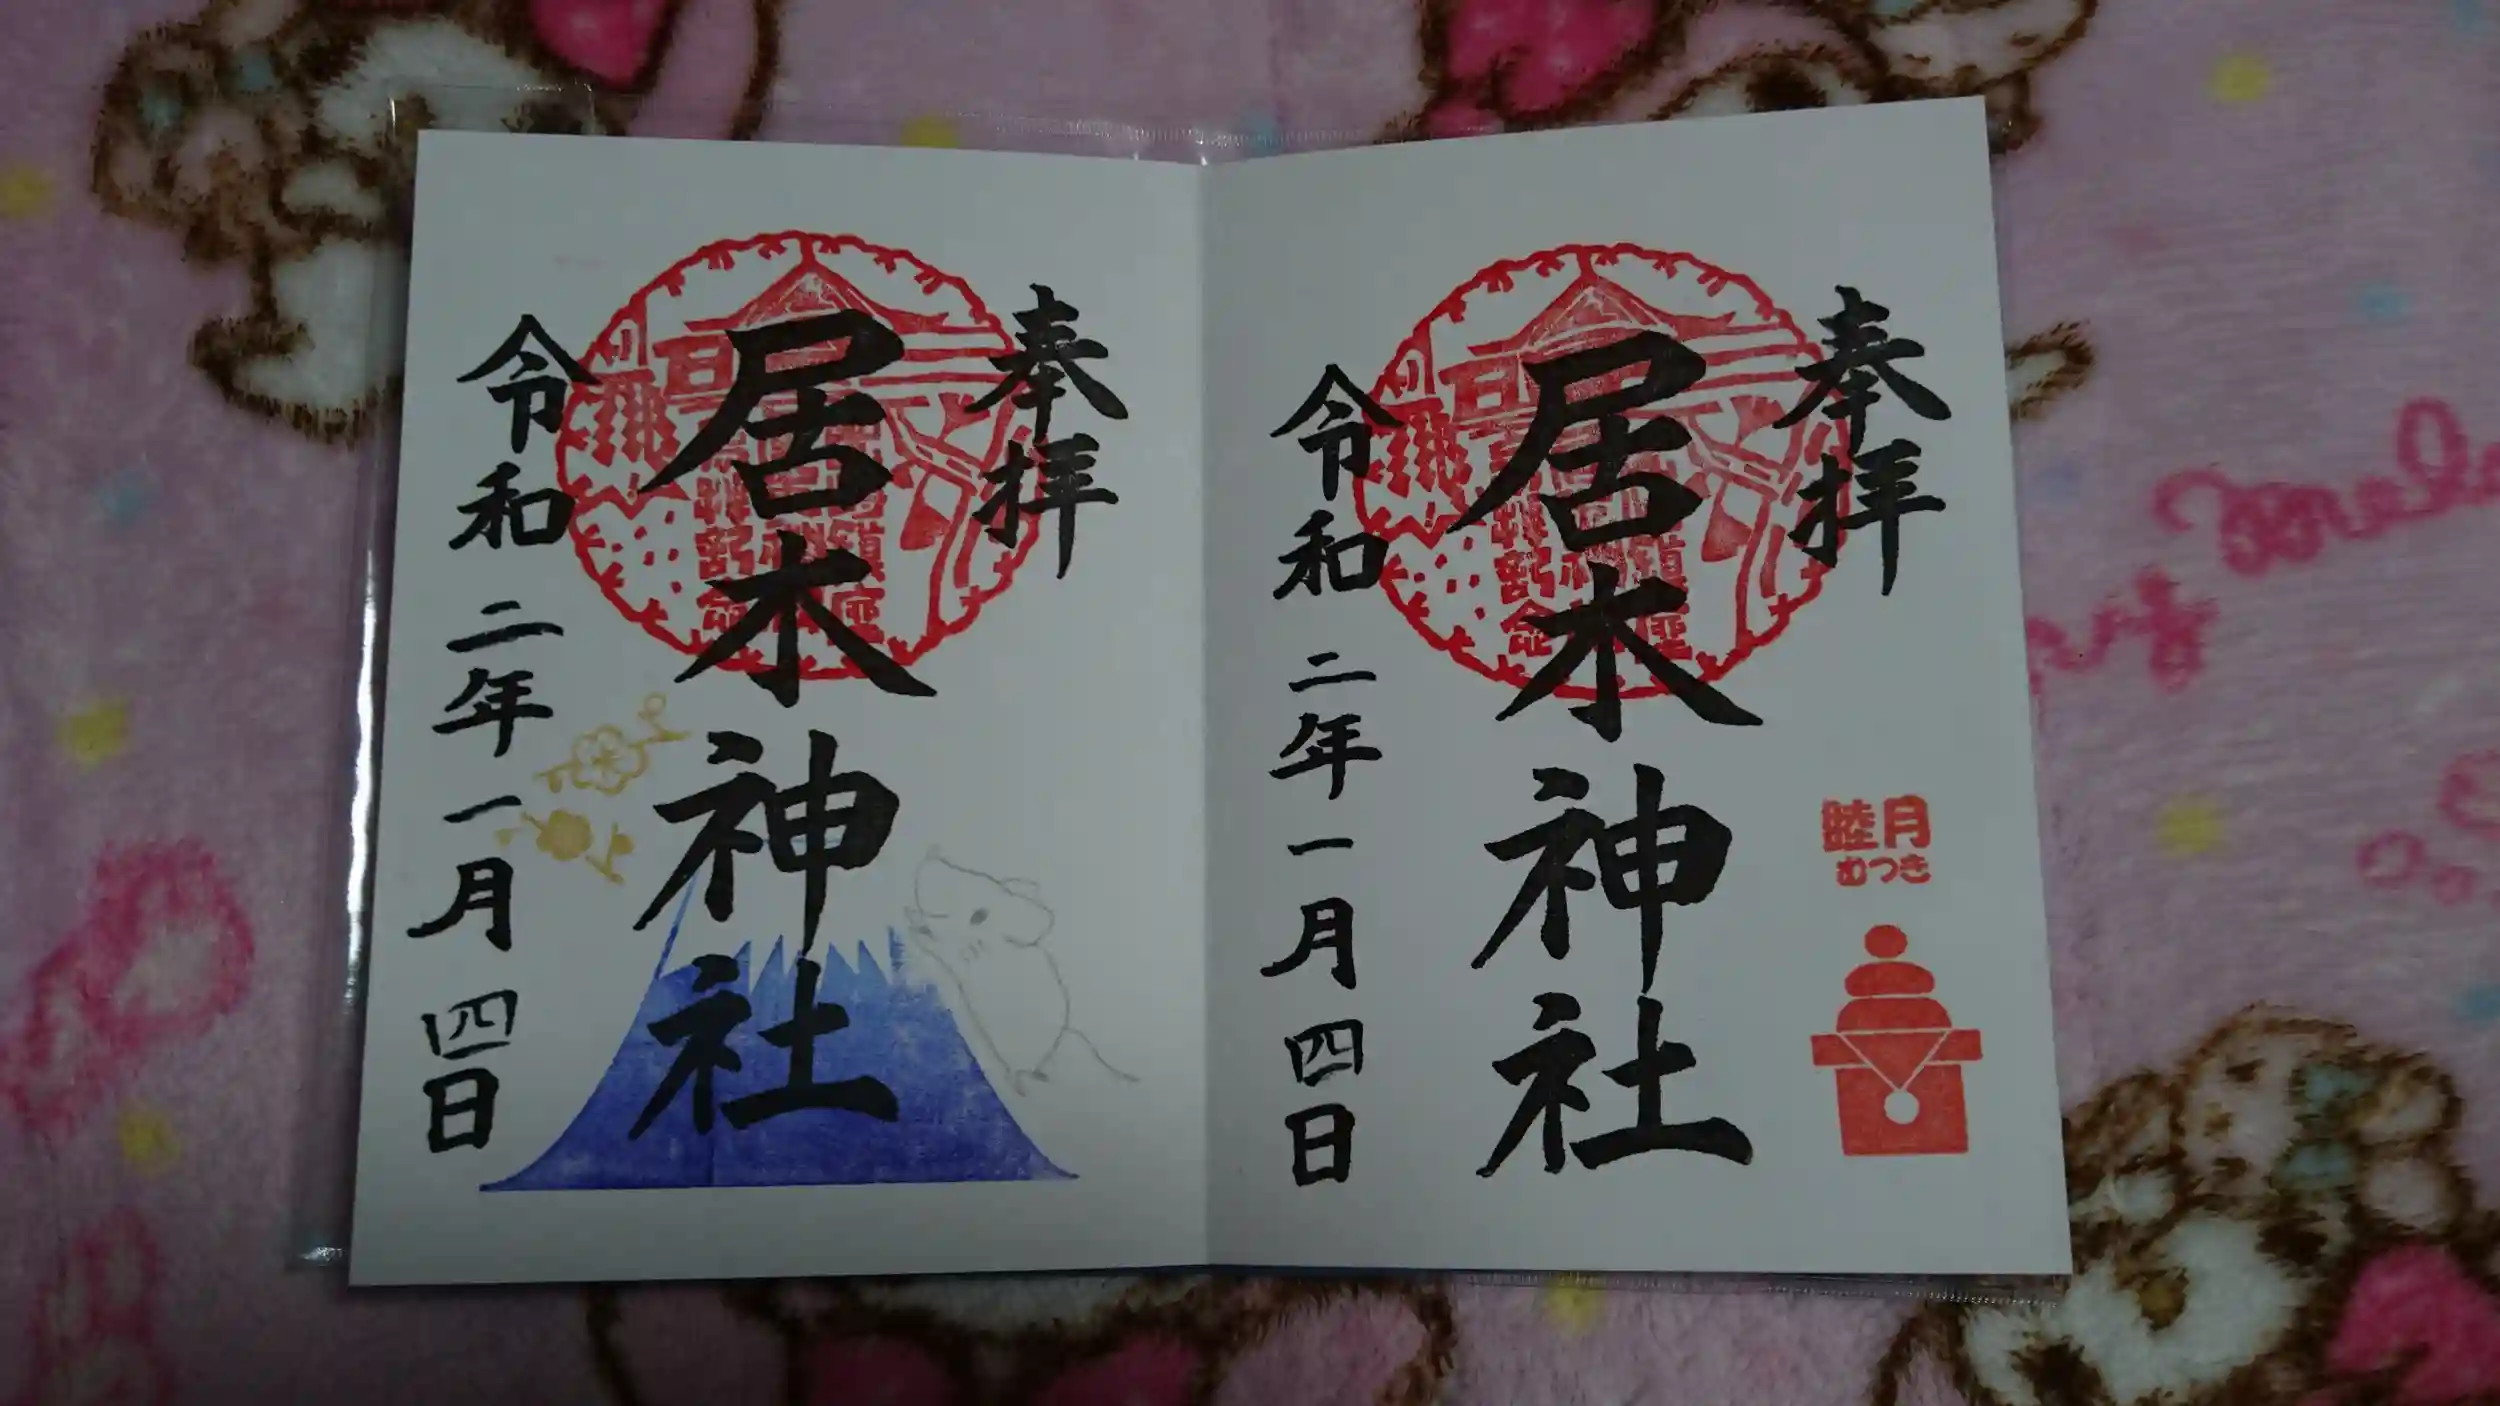 奉拝
居木神社
令和二年一月四日
睦月
むつき
奉拝
居木神社
令和二年一月四日